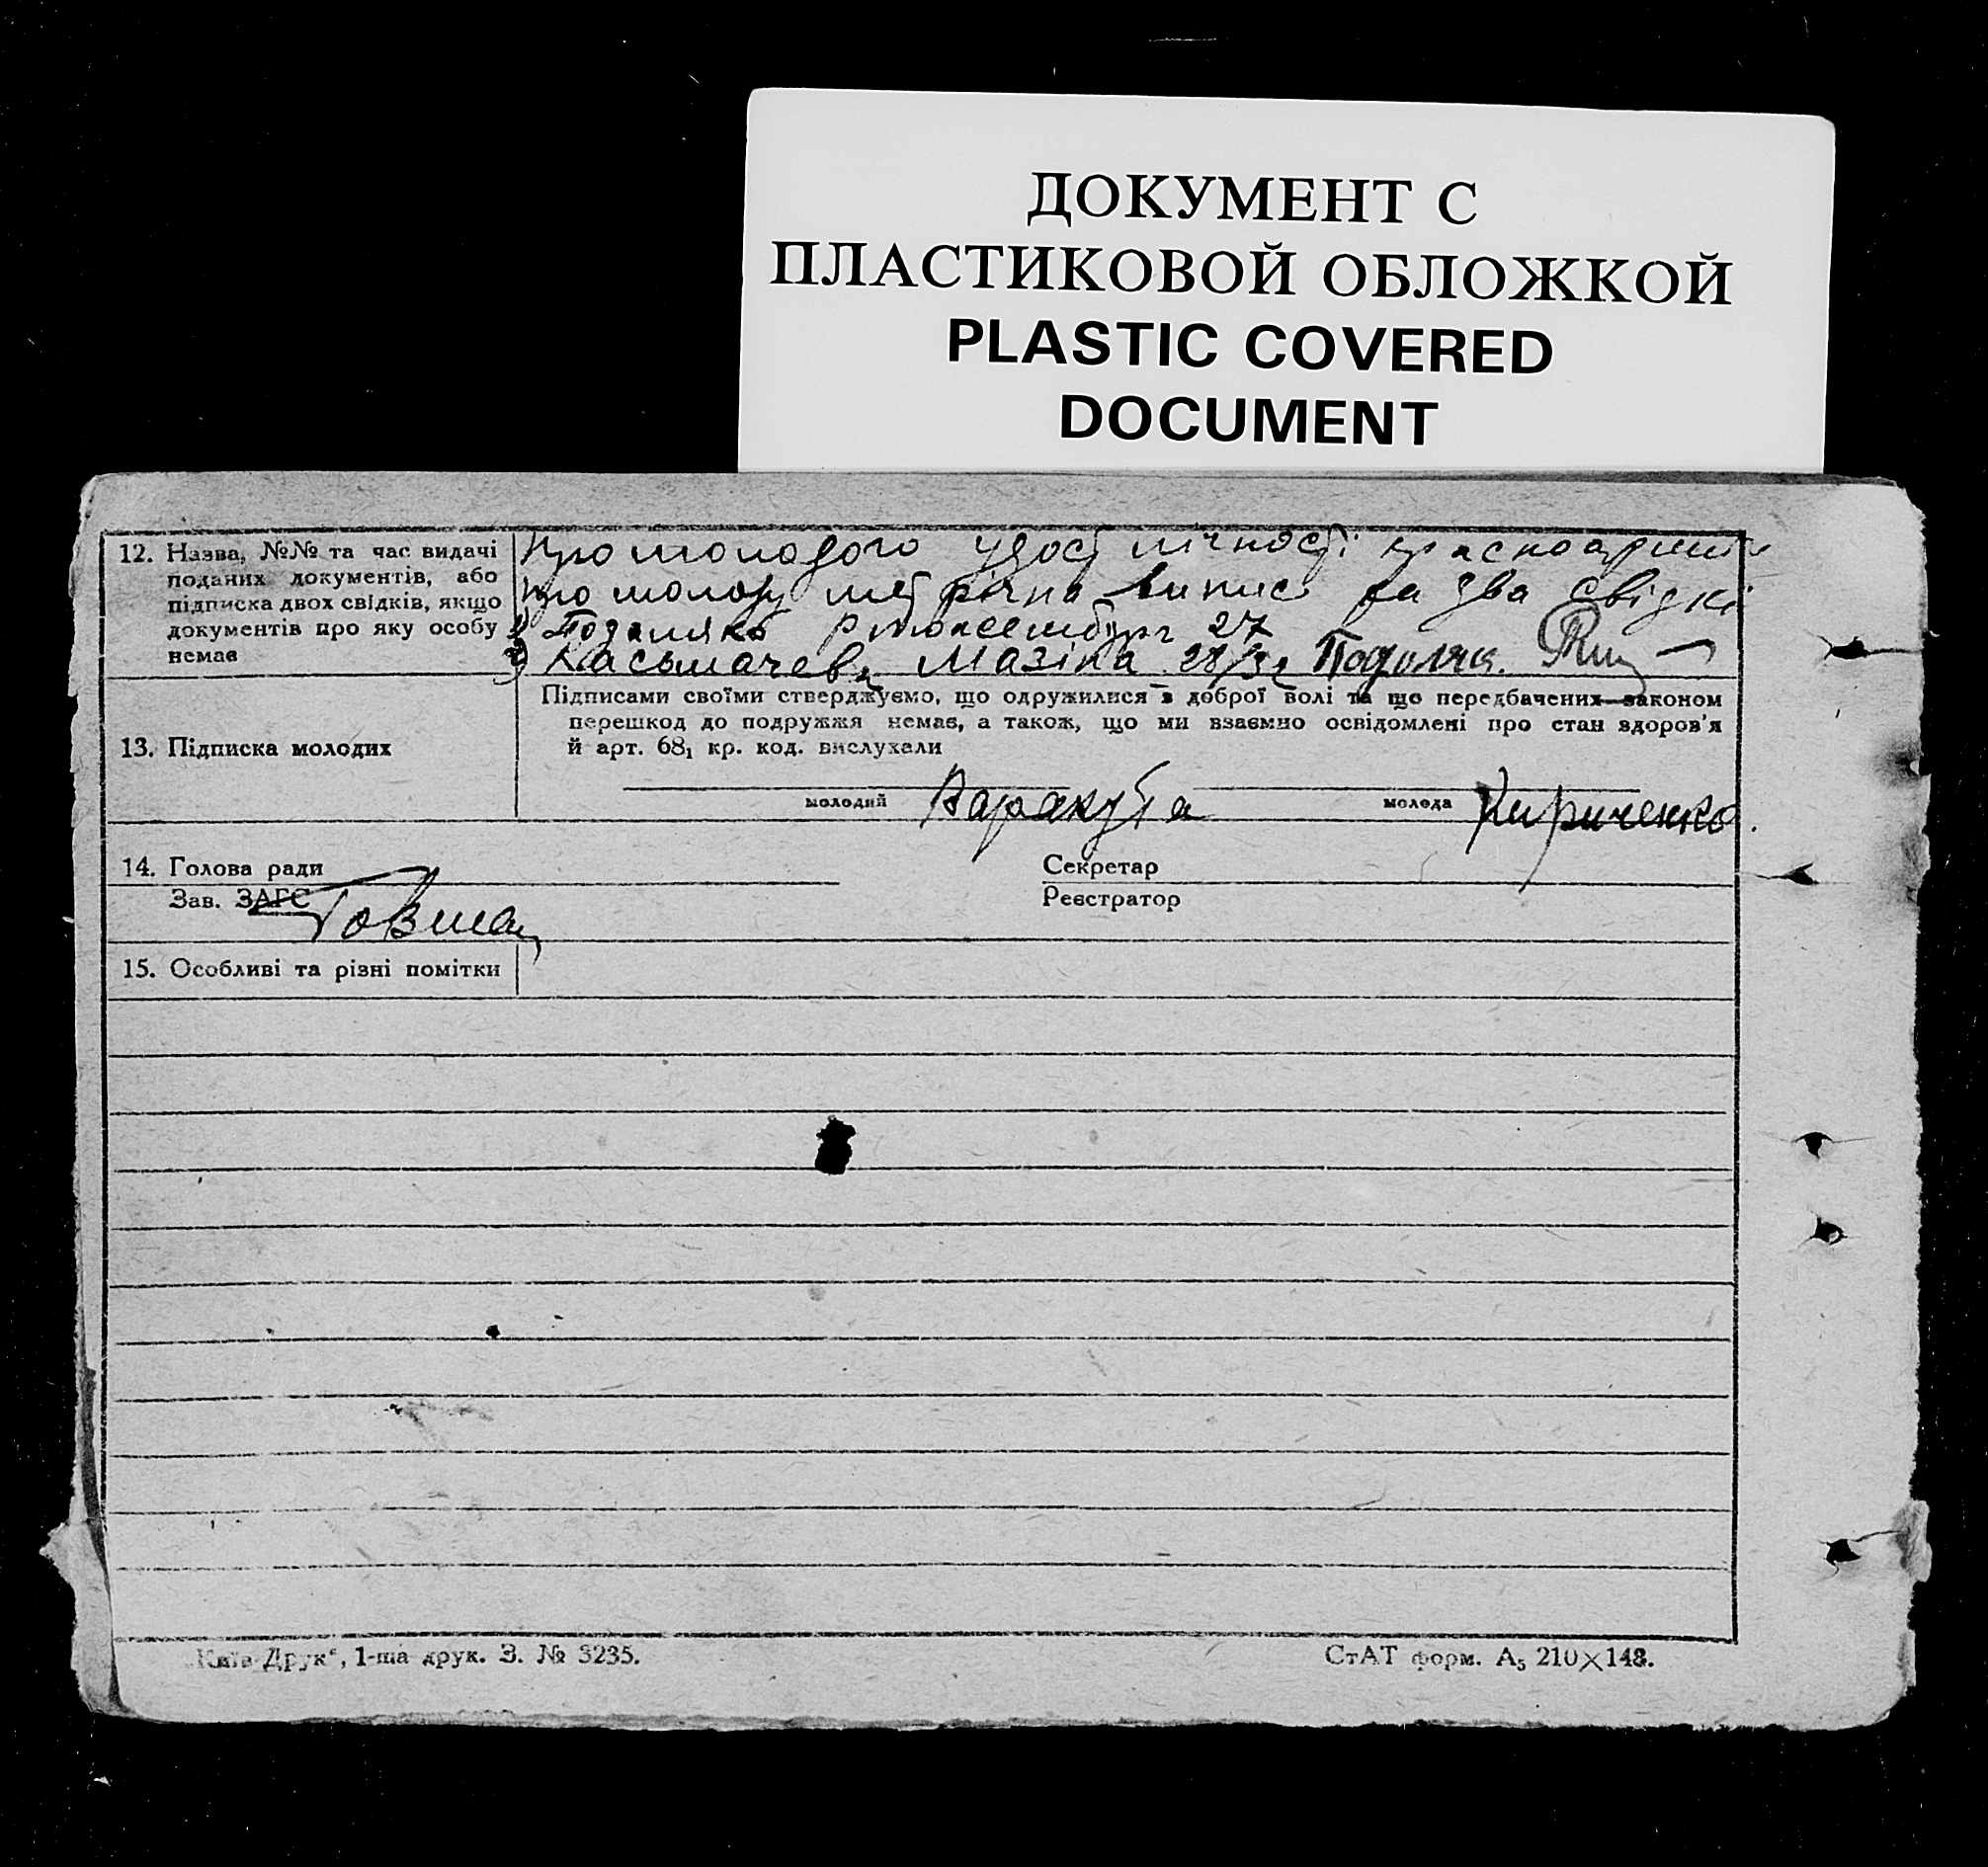 ДОКУМЕНТ С
ПЛАСТИКОВОЙ ОБЛОЖКОЙ
PLASTIC COVERED
DOCUMENT
12. Назва, №№ та час видачі
поданих документів, або
підписка двох свідків, якщо
документів про яку особу
немає
Про молодого удост лічності
Про молоду метрічна випись та два свідкі
1) 27
2) Мазіна 28/32 Подоляка
13. Підписка молодих
Підписами своїми стверджуємо, що одружилися з доброї волі та що передбачених законом
перешкод до подружжя немає, а також, що ми взаємно освідомлені про стан здоров'я
й арт. 68₁ кр. код. вислухали
молодий Варакута молода Кириченко.
14. Голова ради Секретар
Зав. ЗАГС Реєстратор
15. Особливі та різні помітки
„Київ-Друк“, 1-ша друк. З. № 3235. СтАТ форм. А₅ 210×148.